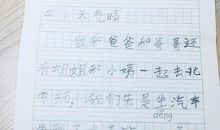 二 天气晴
我和爸爸和哥哥还
有姐姐和小姨一起去北
我们先是坐汽车
děng